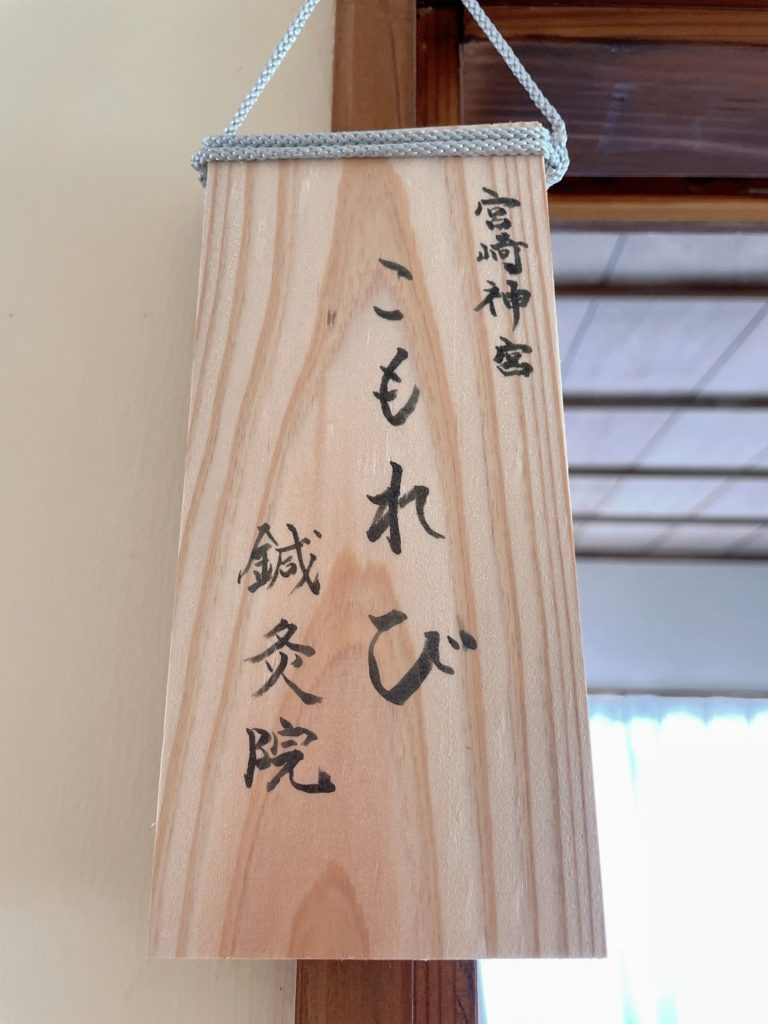 宮崎神宮
こもれび
鍼灸院